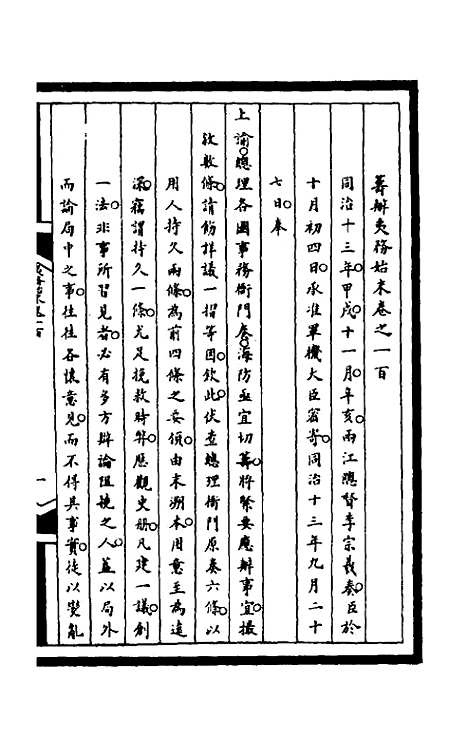 籌辦夷務始末卷之一百
同治十三年甲戌十一月辛亥兩江總督李宗羲奏臣於
十月初四日承准軍機大臣密寄同治十三年九月二十
七日奉
上諭總理各國事務衙門奏海防亟宜切籌將緊要應辦事宜撮
敘數條請飭詳議一摺等因欽此伏查總理衙門原奏六條以
用人持久兩條為前四條之要領由末溯本用意至為遠
深竊謂持久一條尤足挽救時弊歷觀史冊凡建一議創
一法非事所習見者必有多方辯論阻撓之人蓋以局外
而論局中之事往往各懷意見而不得其事實徒以熒亂